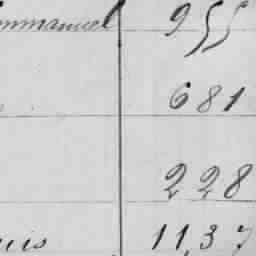 mmanuel 955
681
228
uis 1137